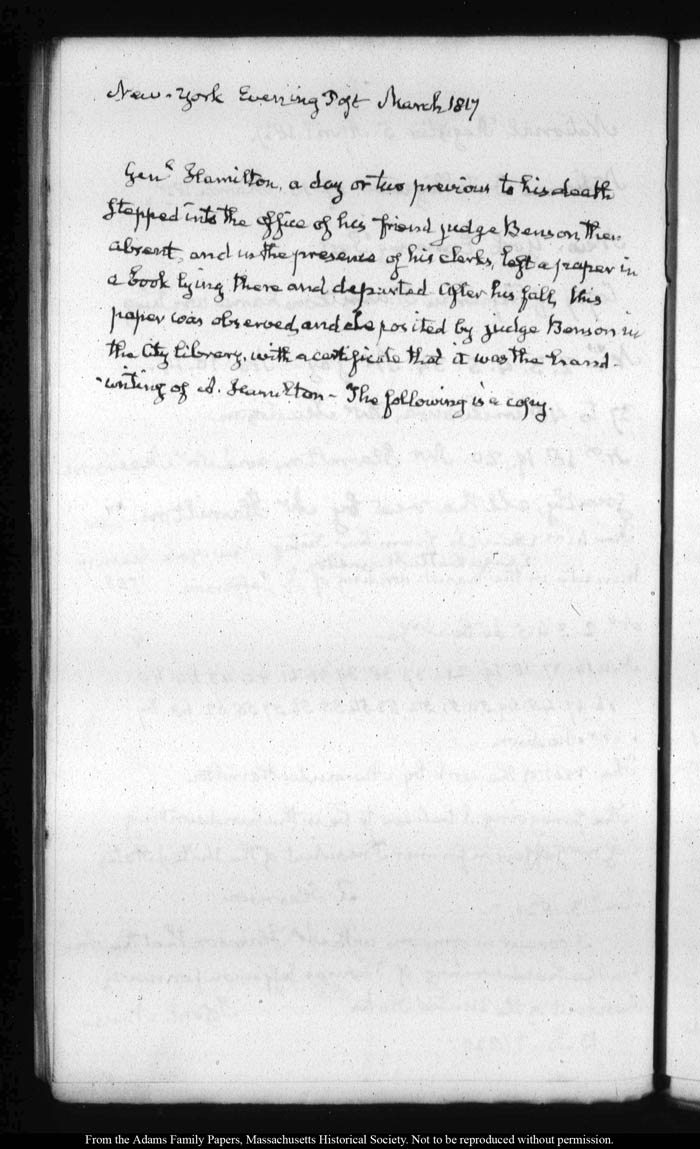 New-York Evening Post March 1817
Genl Hamilton, a day or two previous to his death
stepped into the office of his friend judge Benson, then
absent, and in the presence of his clerks, left a paper in
a book lying there and departed After his fall, this
paper was observed, and deposited by judge Benson in
the City Library, with a certificate that it was the hand
-writing of A. Hamilton - The following is a copy
From the Adams Family Papers, Massachusetts Historical Society. Not to be reproduced without permission.